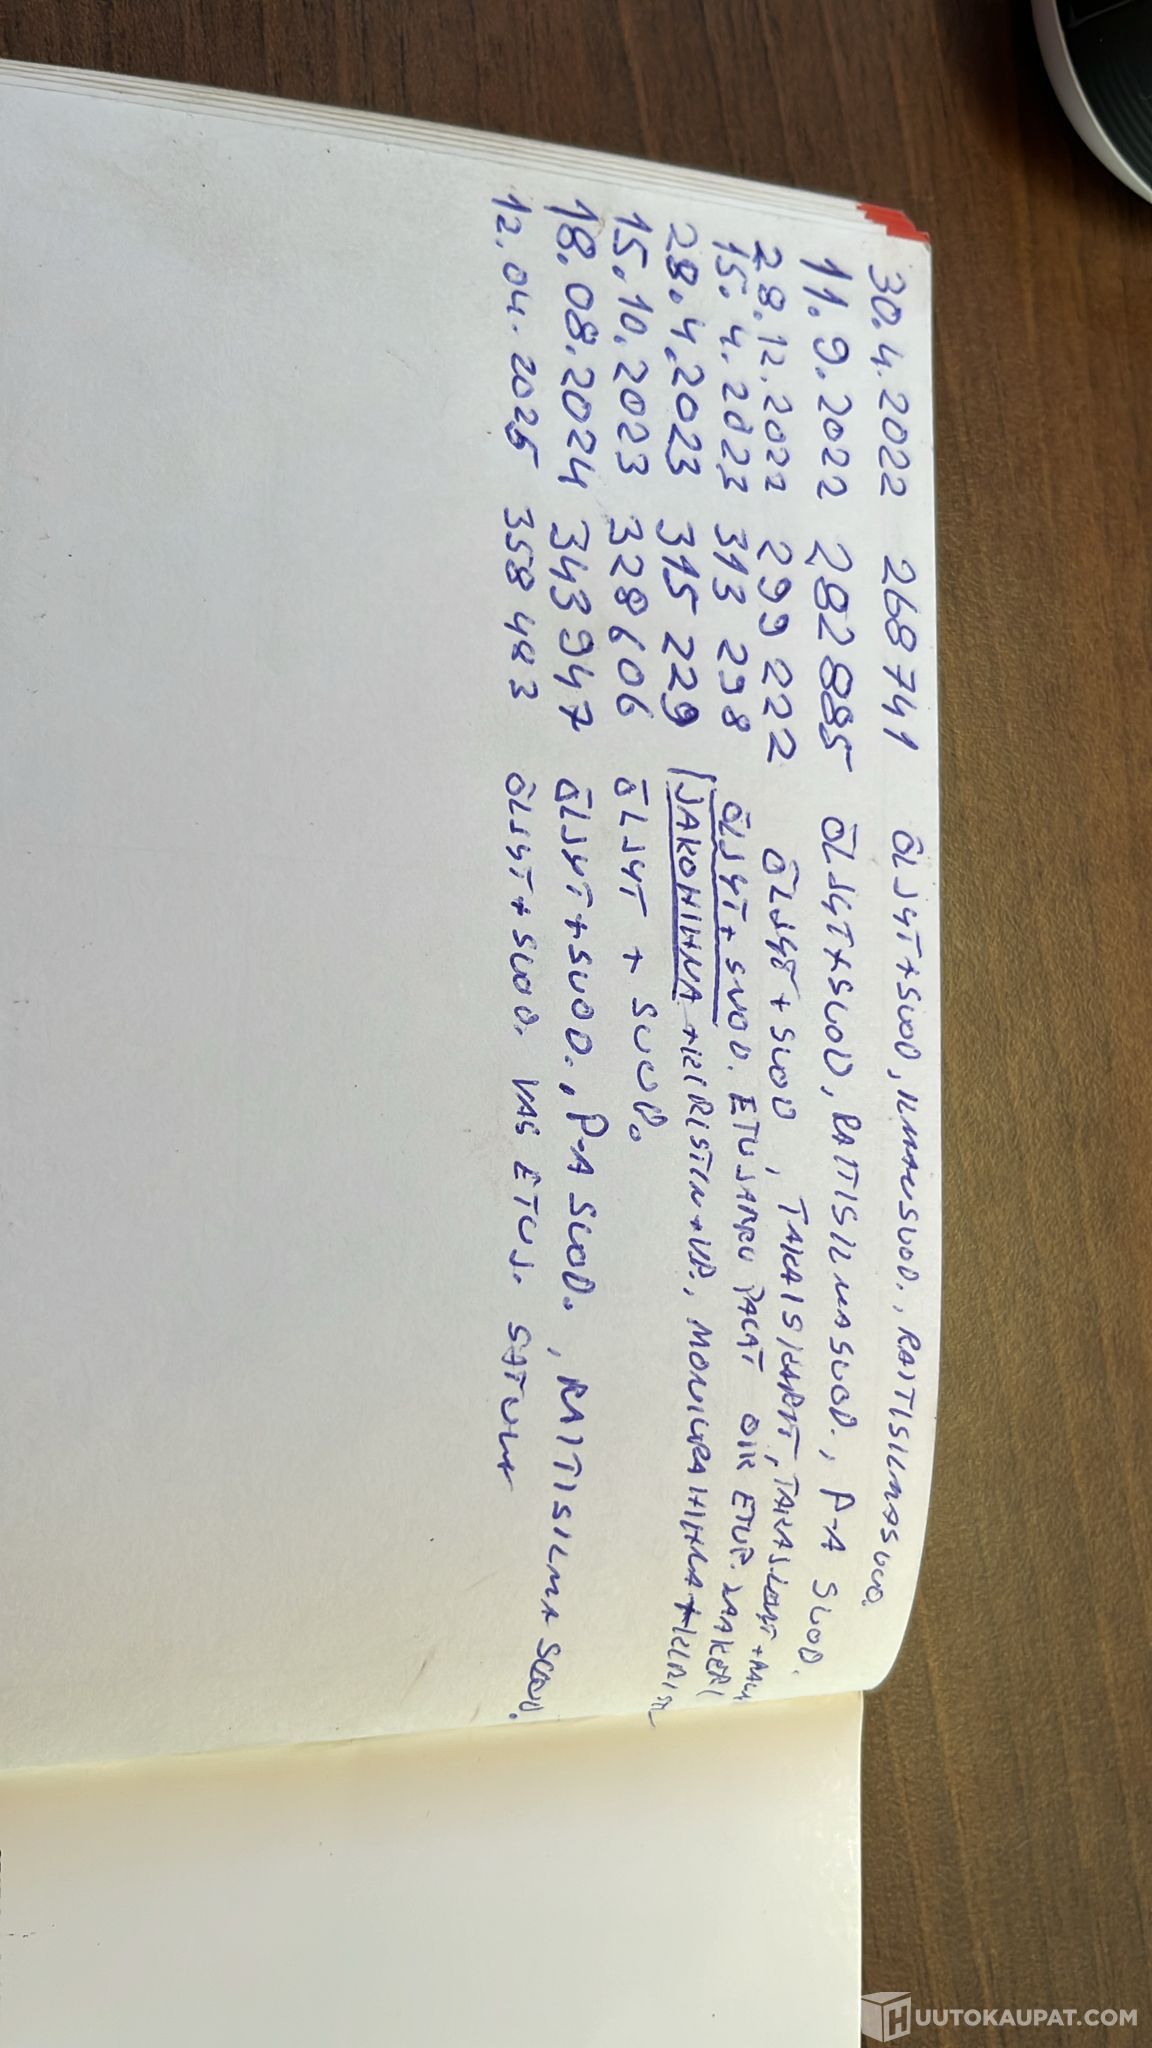 30.4.2022 268741 ÖLJYT+SUOD, ILMANSUOD., RAITISILMASUOD.
11.9.2022 282885 ÖLJYT+SUOD, RAITISILMASUOD., P-A SUOD.
28.12.2022 299222 ÖLJYT+SUOD, TAKAISKARIT, TAKASLEVYT+PALA
15.4.2023 313298 ÖLJYT+SUOD. ETUJARRU PALAT OIK ETUP. LAAKERI
28.4.2023 315229 (JAKOHIHNA +KIRISTIN+VP., MONIURAHIHNA+KIRIST
15.10.2023 328606 ÖLJYT + SUOD.
18.08.2024 343947 ÖLJYT+SUOD., P-A SUOD., RAITISILMASUOD.
12.04.2025 358483 ÖLJYT+SUOD. VAS ETUJ. SATULA
HUUTOKAUPAT.COM